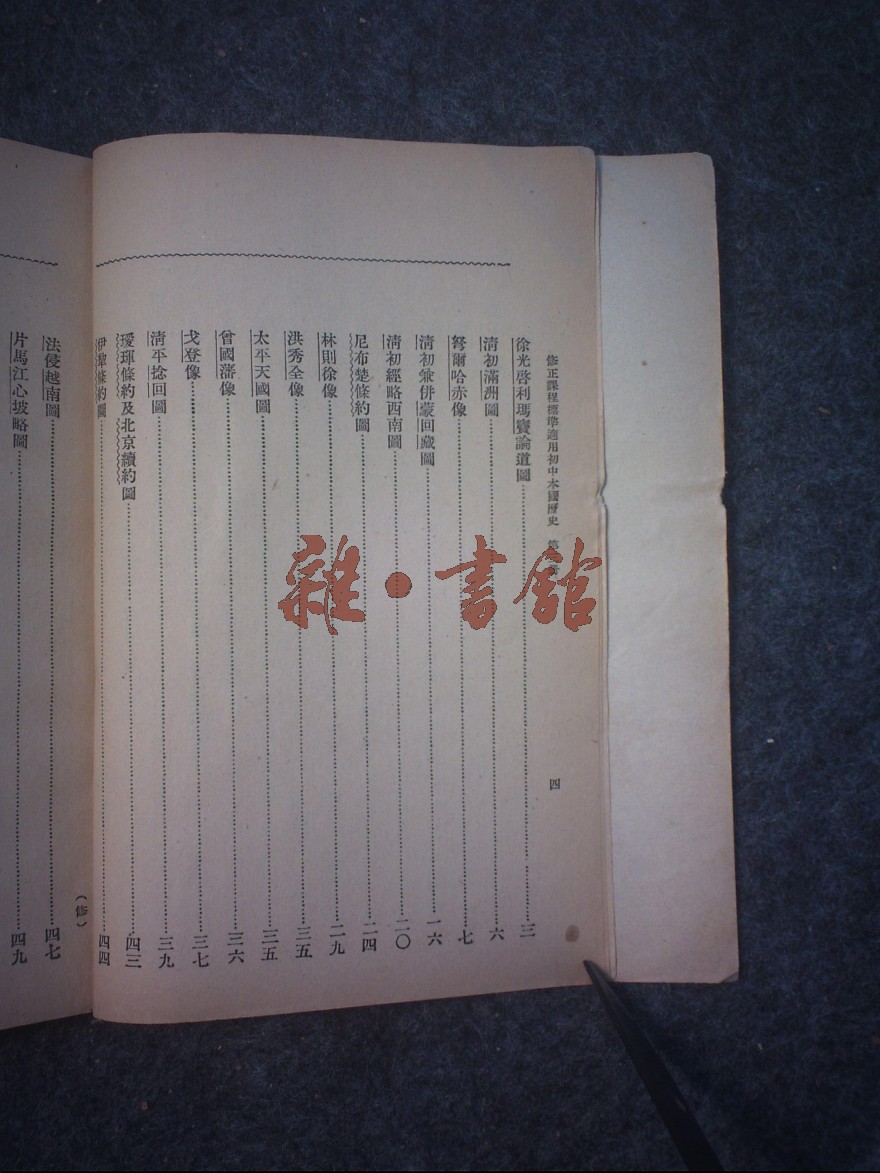 修正課程標準適用初中本國歷史 第
四
徐光啓利瑪竇論道圖……三
清初滿洲圖……六
弩爾哈赤像……七
清初兼併蒙回藏圖……一六
清初經略西南圖……二〇
尼布楚條約圖……二四
林則徐像……二九
洪秀全像……三五
太平天國圖……三五
曾國藩像……三六
戈登像……三七
清平捻回圖……三九
璦琿條約及北京續約圖……四三
伊犂條約圖……四四
(修)
法侵越南圖……四七
片馬江心坡略圖……四九
雜·書館